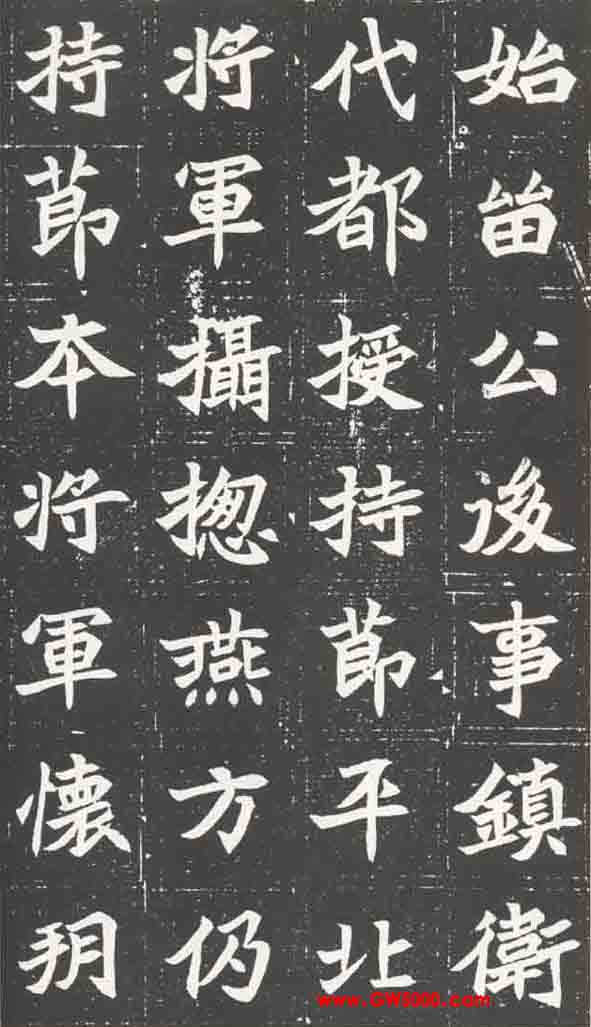 始留公後事鎮衛
代都授持莭平北
將軍攝揔燕方仍
持莭本將軍懷朔
www.GW5000.com